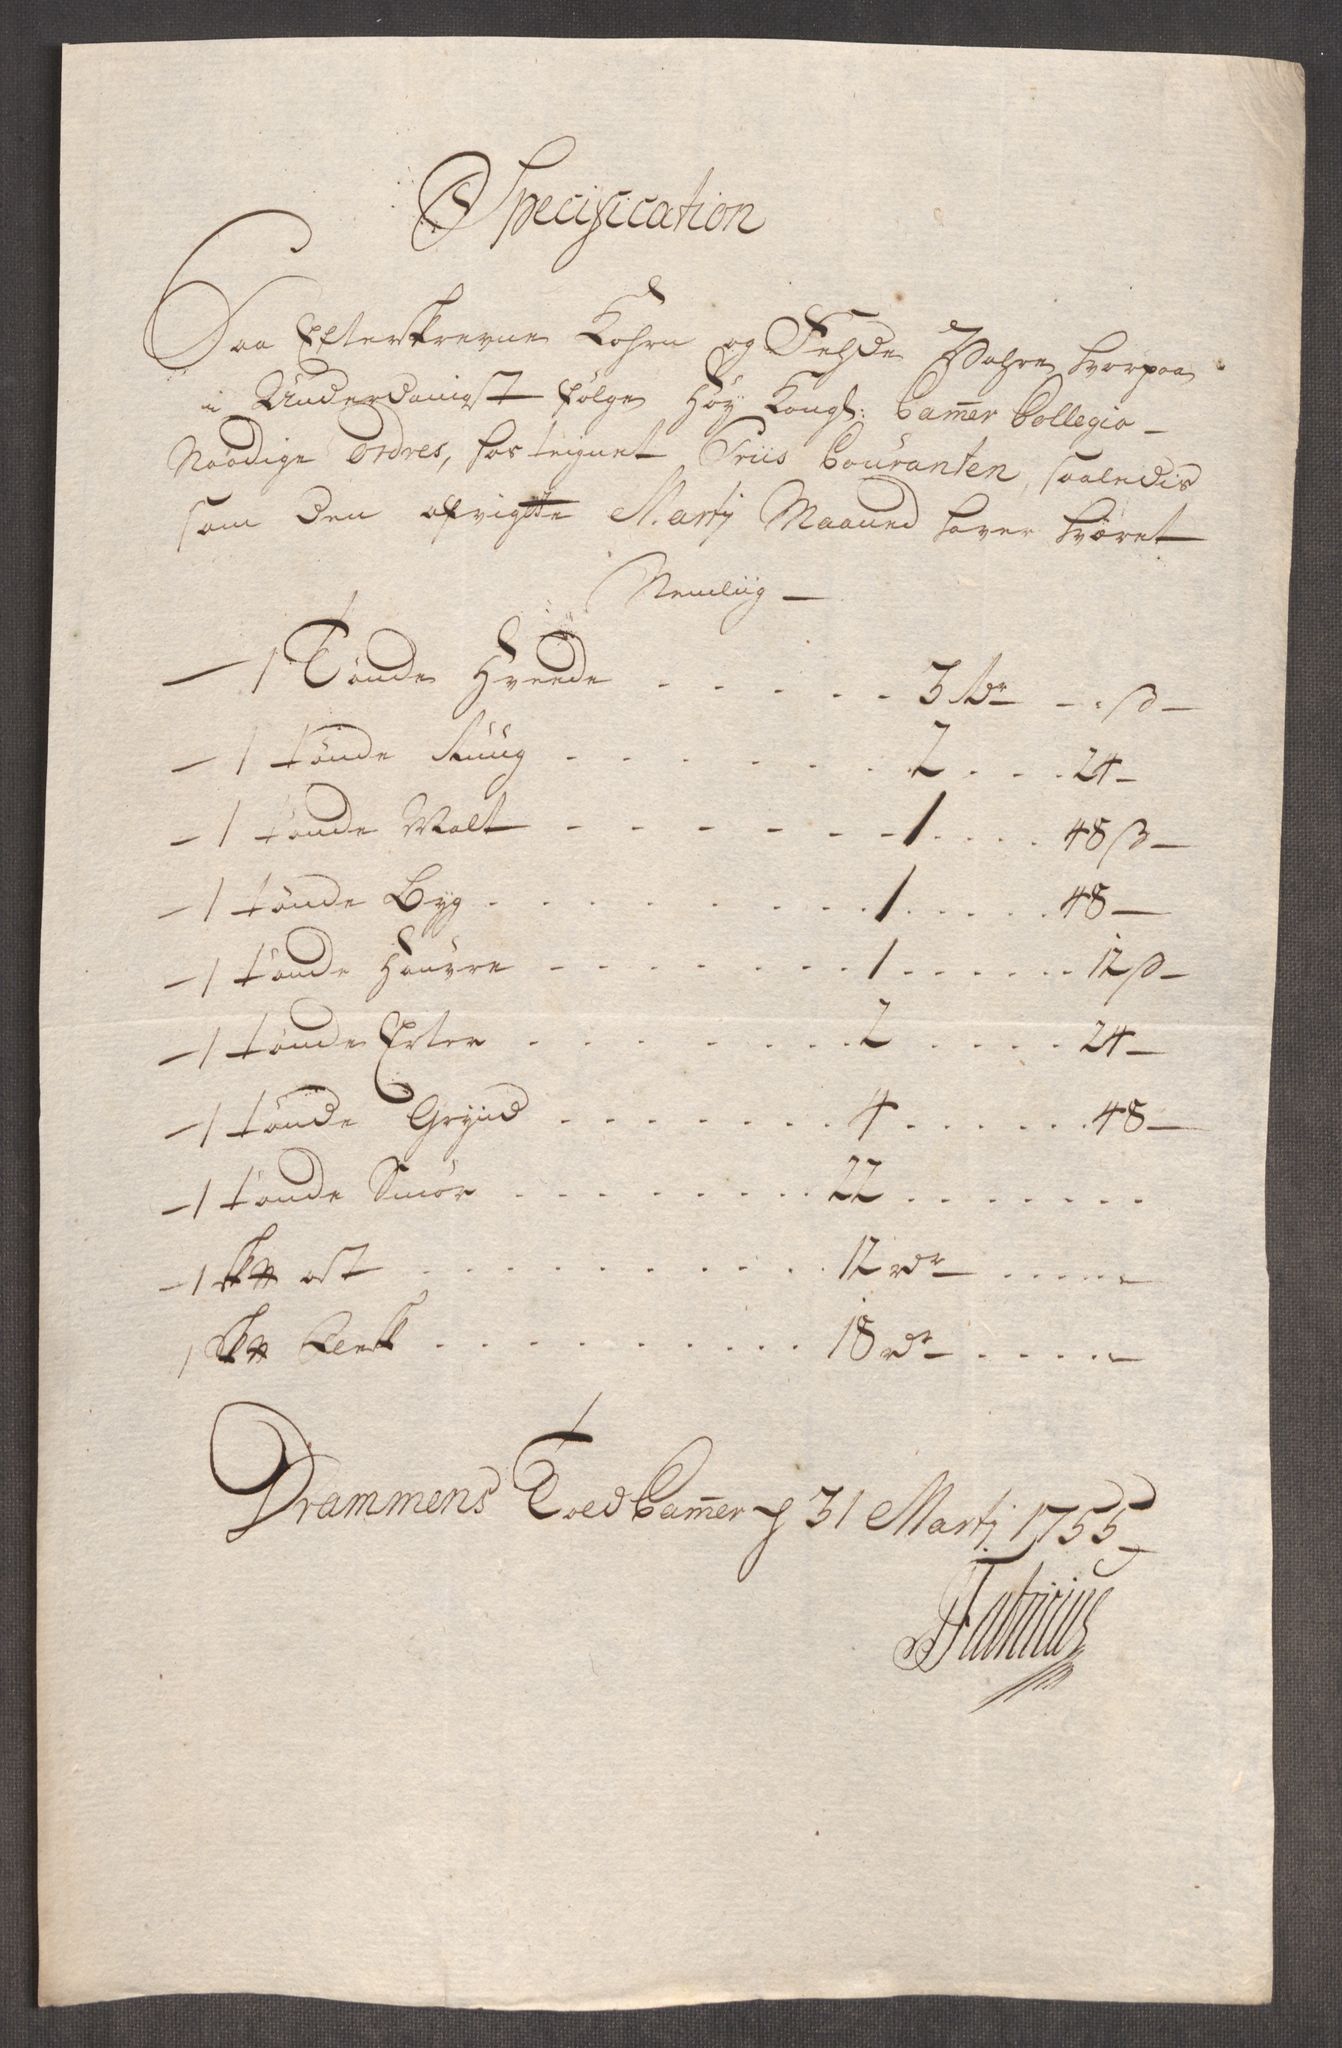 Specification
Paa Efterskrevne Kohrn og Fehde Wahre, hvorpaa
i Underdanigst følge Høy Kongl: Cammer Collegio
Naadige Ordres, hos teignet Priis Couranten, saaledis
som den afvigte Martj Maaned haver Wæret
Nemlig
1 Tønde Hvede . . . . . 3 Rdr - . ß
1 tønde Ruug . . . . . . 2 . . . 24
1 tønde Malt . . . . . . 1 . . . . 48 ß
1 tønde Byg . . . . . . . 1 . . . . . 48
1 tønde Hauvre . . . . . . 1 . . . . . . 12 ß
1 tønde Erter . . . . . . . 2 . . . . . 24
1 tønde Grynd . . . . . . . 4 . . . . . . 48
1 tønde Smør . . . . . . . . 22 . . . . . . .
1 Sk℔ ost . . . . . . . . . 12 rdr . . . . .
1 Sk℔ Flesk . . . . . . . . . 18 rdr . . . . .
Drammens Told Cammer d 31 Martj 1755
Fabricius